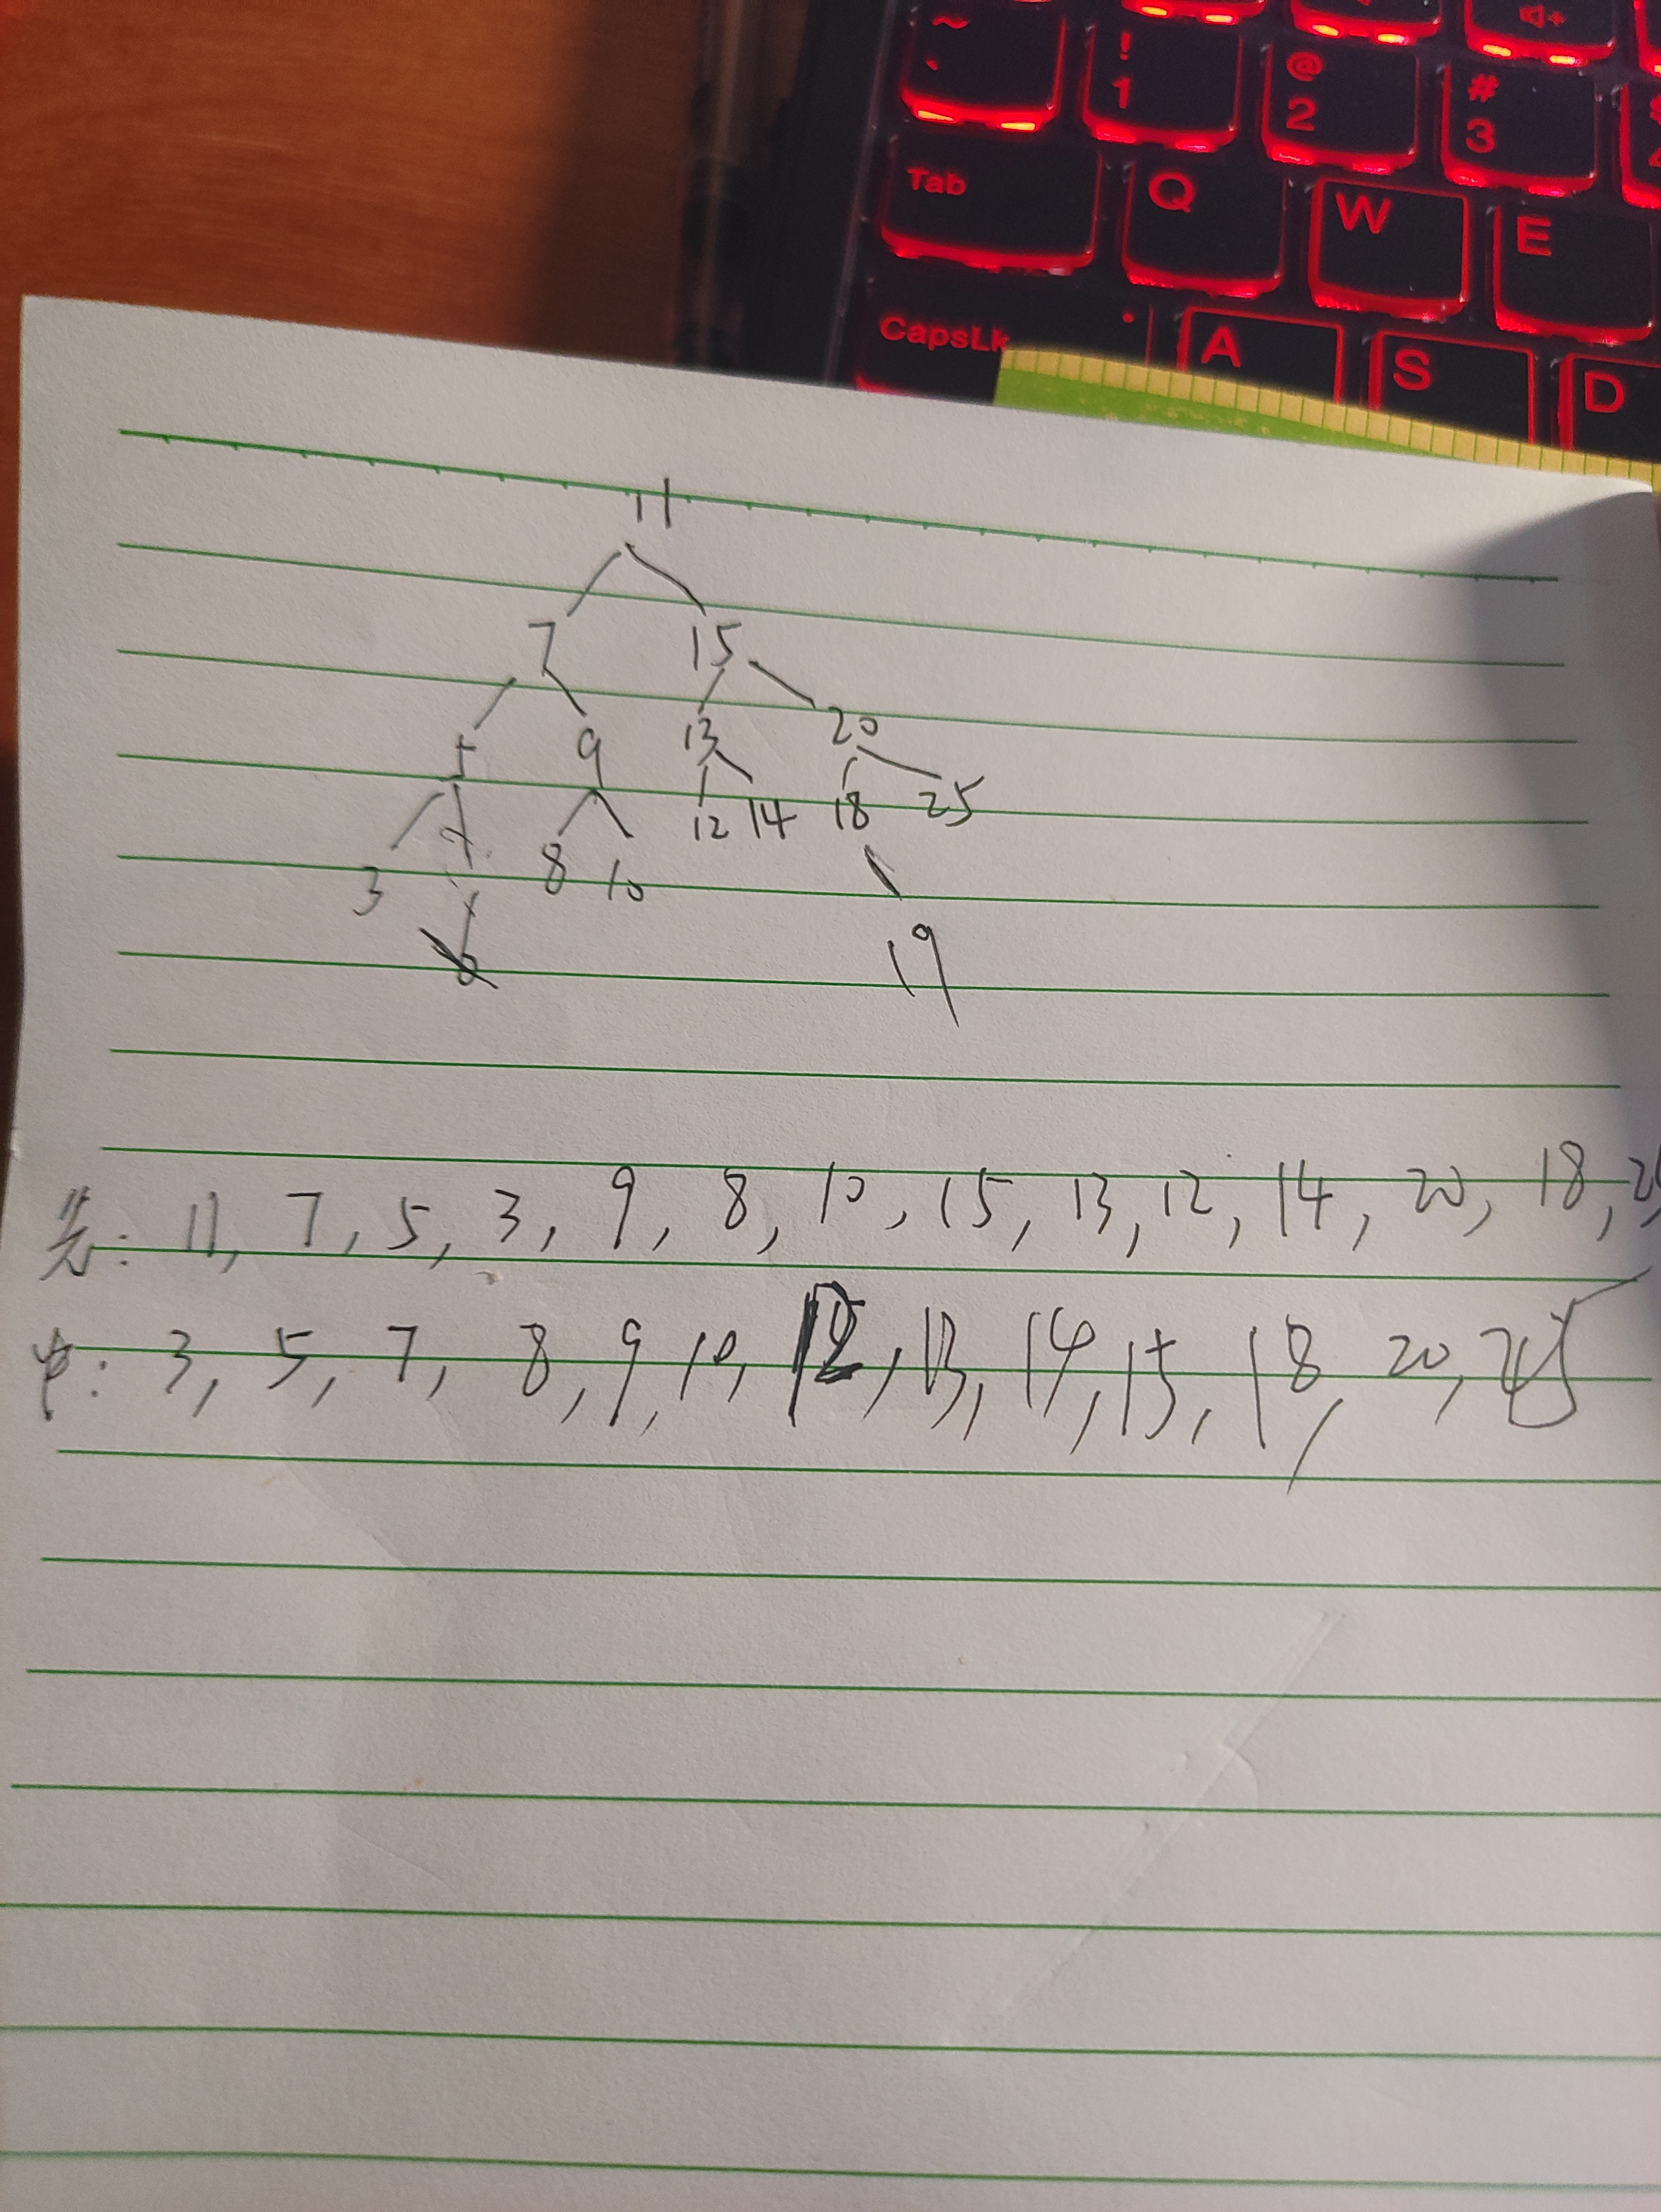 ~ ! @ #
` 1 2 3
Tab Q W E
CapsLk A S D
11
7 15
5 9 13 20
3 8 10 12 14 18 25
19
先: 11, 7, 5, 3, 9, 8, 10, 15, 13, 12, 14, 20, 18,
中: 3, 5, 7, 8, 9, 10, 12, 13, 14, 15, 18, 20,